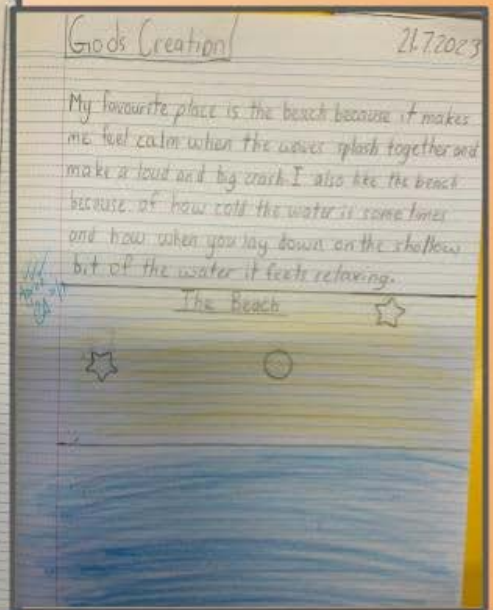 Gods Creation
21.7.2023
My favourite place is the beach because it makes
me feel calm when the waves splash together and
make a loud and big crash. I also like the beach
because of how cold the water is some times
and how when you lay down on the shallow
bit of the water it feels relaxing.
The Beach